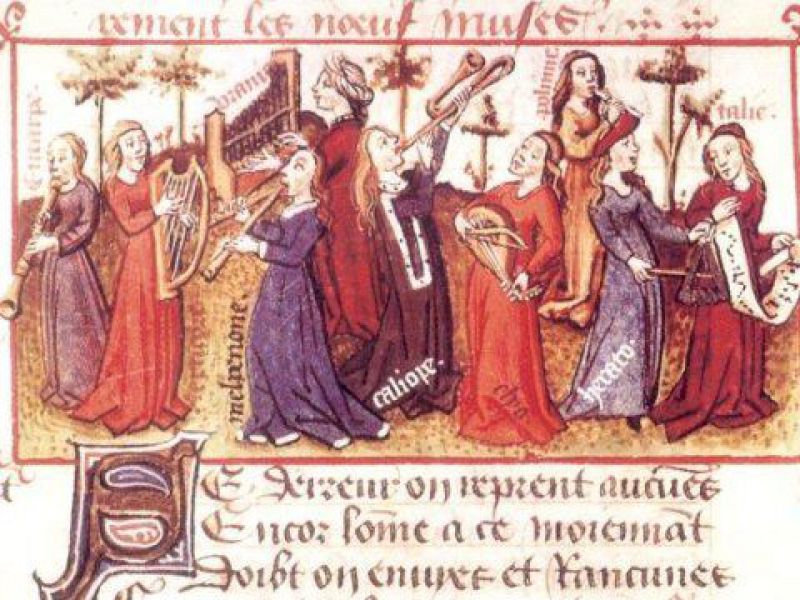 rement les noeuf muses.
Euterpe.
uranie
polimnie
talie.
melpomone.
caliope.
clio
herato.
E derreur on reprent aucuns
Encor lome a ce moiennant
Doibt on enuyes et Rancunes